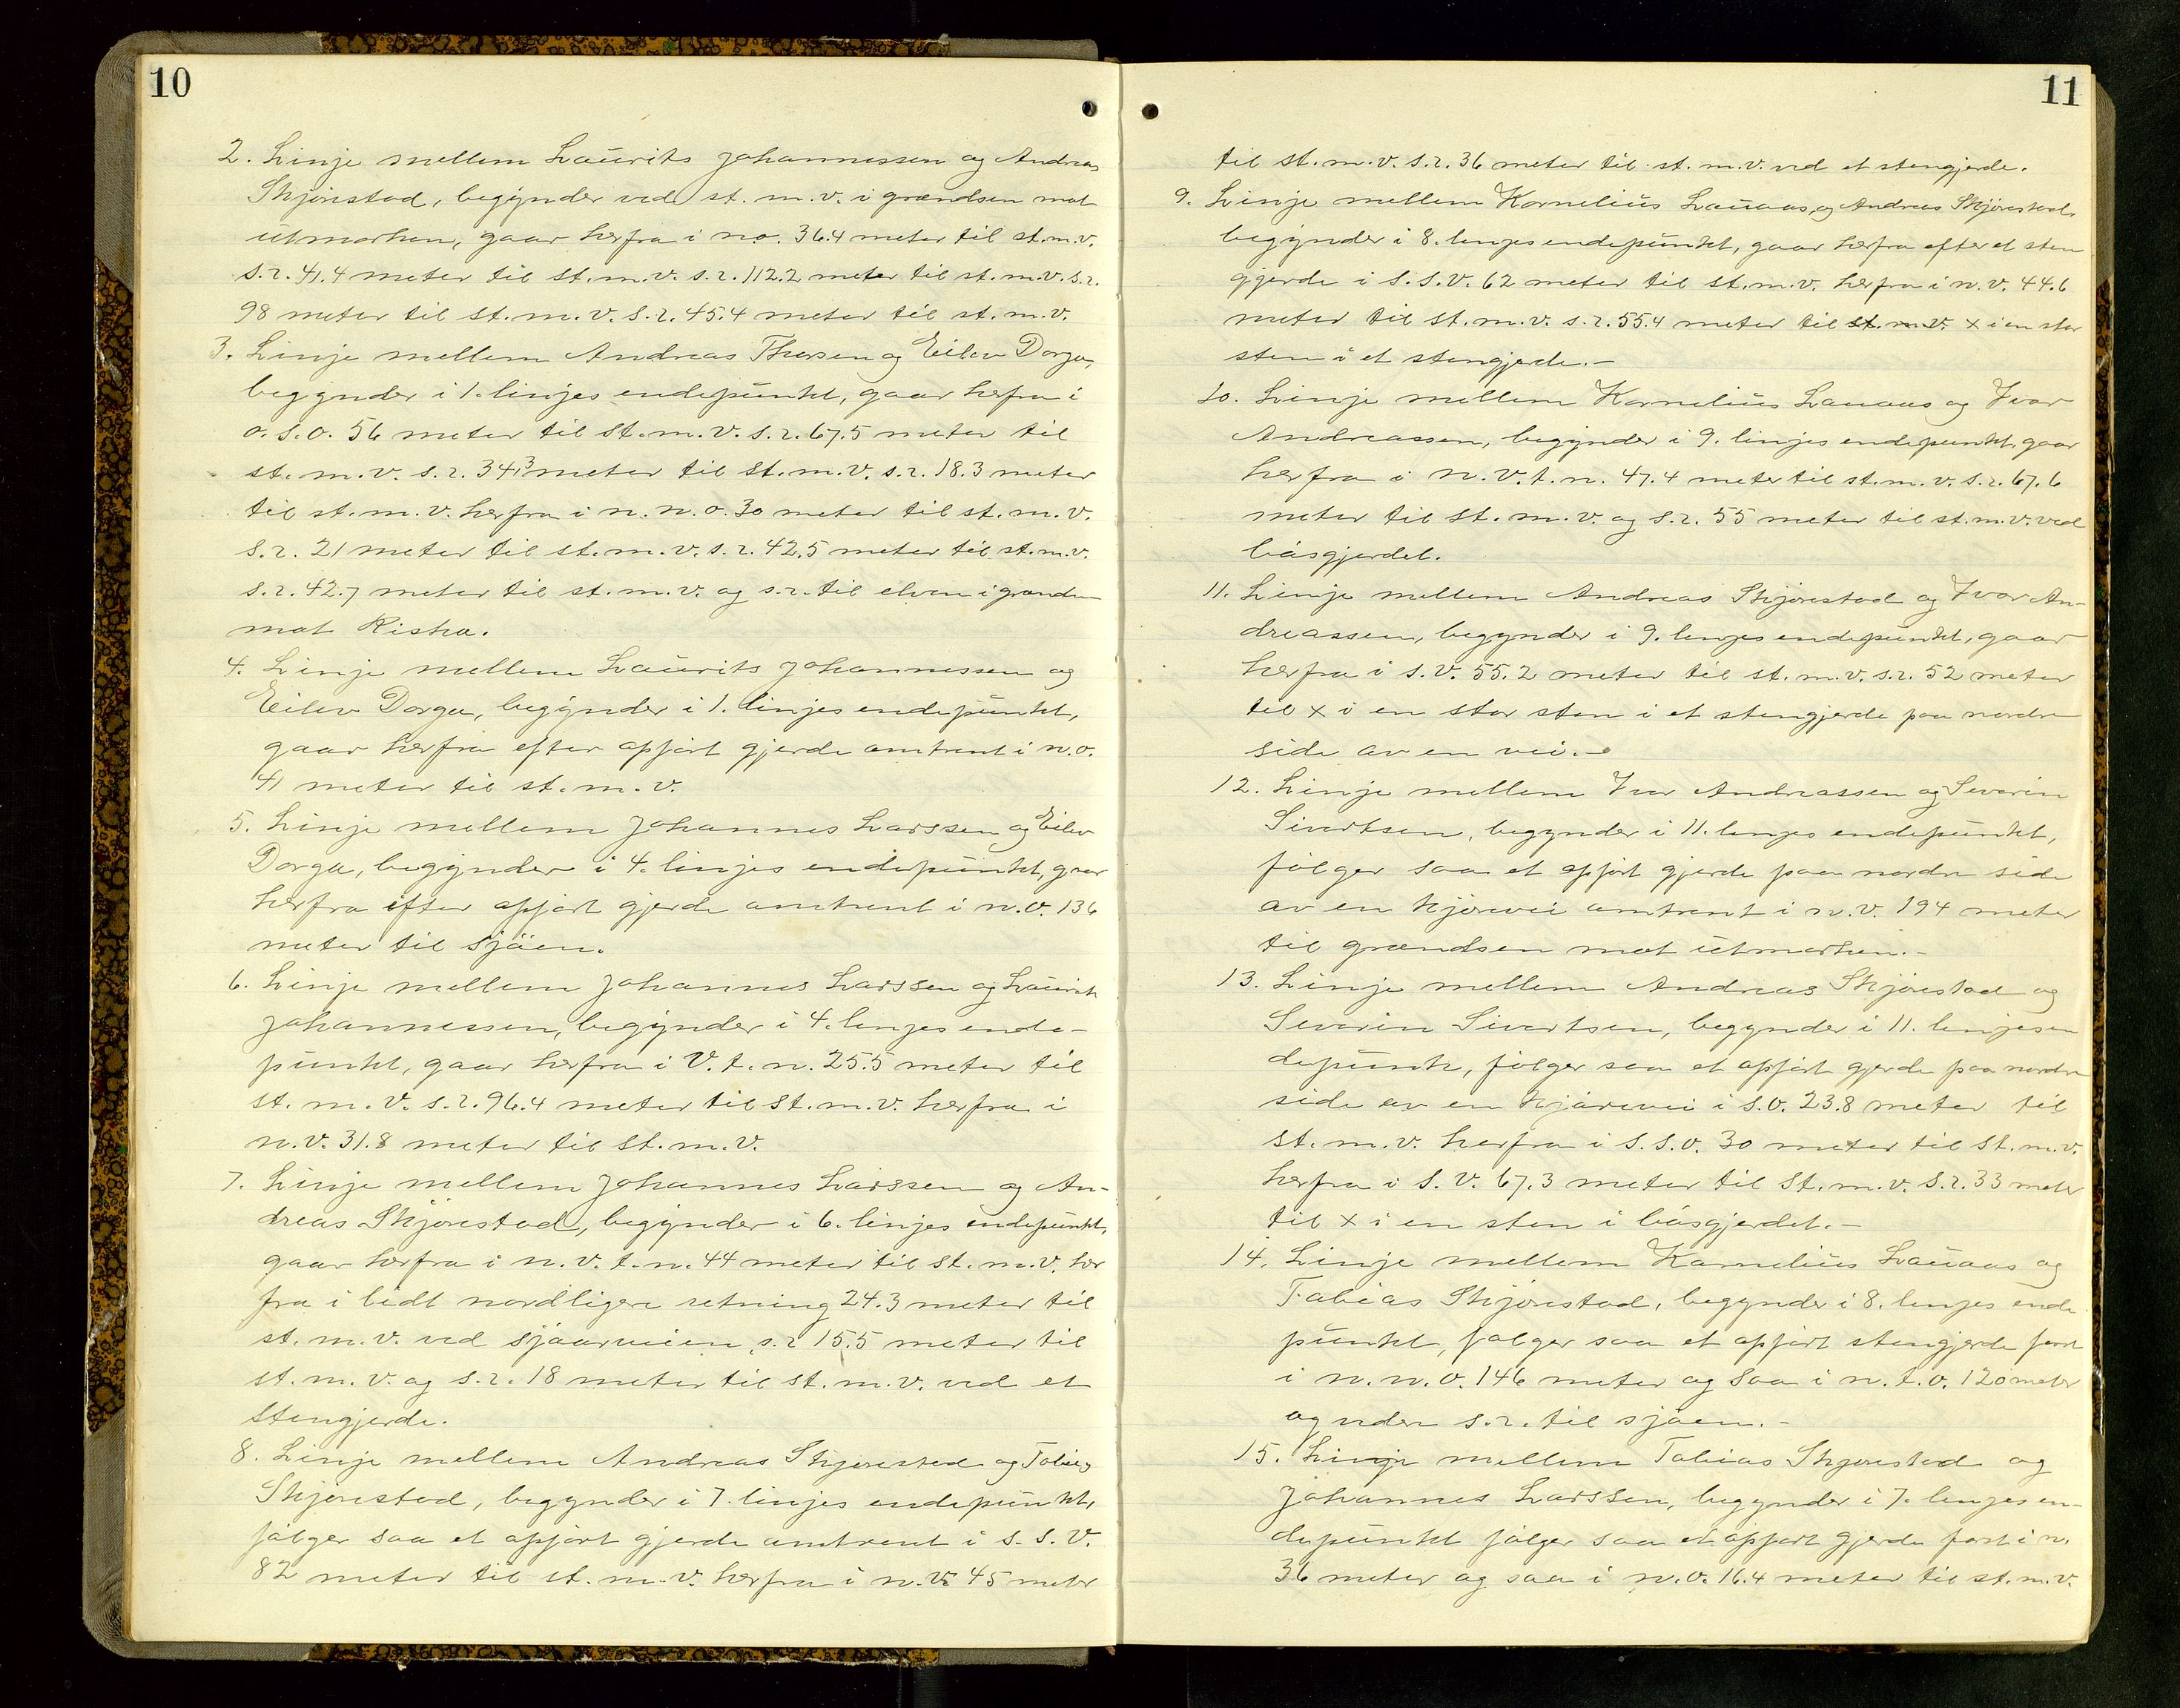 10
2. Linje mellem Laurits Johannessen og Andreas
Skjørestad, begynder ved st. m. v. i grændsen mot
utmarken, gaar herfra i n.o. 36.4 meter til st. m. v.
s. r. 41.4 meter til st. m. v. s. r. 112.2 meter til st. m. v. s. r.
98 meter til st. m. v. s. r. 45.4 meter til st. m. v.
3. Linje mellem Andreas Thorsen og Eilev Dorga,
begynder i 1. linjes endepunkt, gaar herfra i
o. s. o. 56 meter til st. m. v. s. r. 67.5 meter til
st. m. v. s. r. 34.3 meter til st. m. v. s. r. 18.3 meter
til st. m. v. herfra i n. n. o. 30 meter til st. m. v.
s. r. 21 meter til st. m. v. s. r. 42.5 meter til st. m. v.
s. r. 42.7 meter til st. m. v. og s. r. til elven i grændsen
mot Riska.
4. Linje mellem Laurits Johannessen og
Eilev Dorga, begynder i 1. linjes endepunkt,
gaar herfra efter opført gjerde omtrent i n. o.
41 meter til st. m. v.
5. Linje mellem Johannes Larssen og Eilev
Dorga, begynder i 4. linjes endepunkt, gaar
herfra efter opført gjerde omtrent i n. o. 136
meter til sjøen.
6. Linje mellem Johannes Larssen og Laurits
Johannessen, begynder i 4. linjes ende-
punkt, gaar herfra i V. t. n. 25.5 meter til
st. m. v. s. r. 96.4 meter til st. m. v. herfra i
n. v. 31.8 meter til st. m. v.
7. Linje mellem Johannes Larssen og An-
dreas Skjørestad, begynder i 6. linjes endepunkt,
gaar herfra i n. v. t. n. 44 meter til st. m. v. her
fra i lidt nordligere retning 24.3 meter til
st. m. v. ved sjøarveien s. r 15.5 meter til
st. m. v. og s. r. 18 meter til st. m. v. ved et
stengjerde.
8. Linje mellem Andreas Skjørestad og Tobias
Skjørestad, begynder i 7. linjes endepunkt,
følger saa et opført gjerde omtrent i s. s. v.
82 meter til st. m. v. herfra i n. v. 45 meter
11
til st. m. v. s. r. 36 meter til st. m. v. ved et stengjerde.
9. Linje mellem Kornelius Lauaas, og Andreas Skjørestad,
begynder i 8. linjes endepunkt, gaar herfra efter et sten
gjerde i s. s. v. 62 meter til st. m. v. herfra i n. v. 44.6
meter til st. m. v. s. r. 55.4 meter til st. m. v. x i en stor
sten i et stengjerde.-
10. Linje mellem Kornelius Lauaas og Ivar
Andreassen, begynder i 9. linjes endepunkt, gaar
herfra i n. v. t. n. 47.4 meter til st. m. v. s. r. 67.6
meter til st. m. v. og s. r. 55 meter til st. m. v. ved
båsgjerdet.
11. Linje mellem Andreas Skjørestad og Ivar An-
dreassen, begynder i 9. linjes endepunkt, gaar
herfra i s. v. 55.2 meter til st. m. v. s. r. 52 meter
til x i en stor sten i et stengjerde paa nordre
side av en vei.-
12. Linje mellem Ivar Andreassen og Severin
Sivertsen, begynder i 11. linjes endepunkt,
følger saa et opført gjerde paa nordre side
av en kjørevei omtrent i n. v. 194 meter
til grændsen mot utmarken.-
13. Linje mellem Andreas Skjørestad og
Severin Sivertsen, begynder i 11. linjes en
depunkt, følger saa et opført gjerde paa nordre
side av en kjørevei i s. o. 23.8 meter til
st. m. v. herfra i s. s. o. 30 meter til st. m. v.
herfra i s. v. 67.3 meter til st. m. v. s. r. 33 meter
til x i en sten i båsgjerdet.-
14. Linje mellem Kornelius Lauaas og
Tobias Skjørestad, begynder i 8. linjes ende
punkt, følger saa et opført stengjerde først
i n. n. o. 146 meter og saa i n. t. o. 120 meter
og videre s. r. til sjøen.-
15. Linje mellem Tobias Skjørestad og
Johannes Larssen, begynder i 7. linjes en-
depunkt følger saa et opført gjerde først i n.
36 meter og saa i n. o. 16.4 meter til st. m. v.